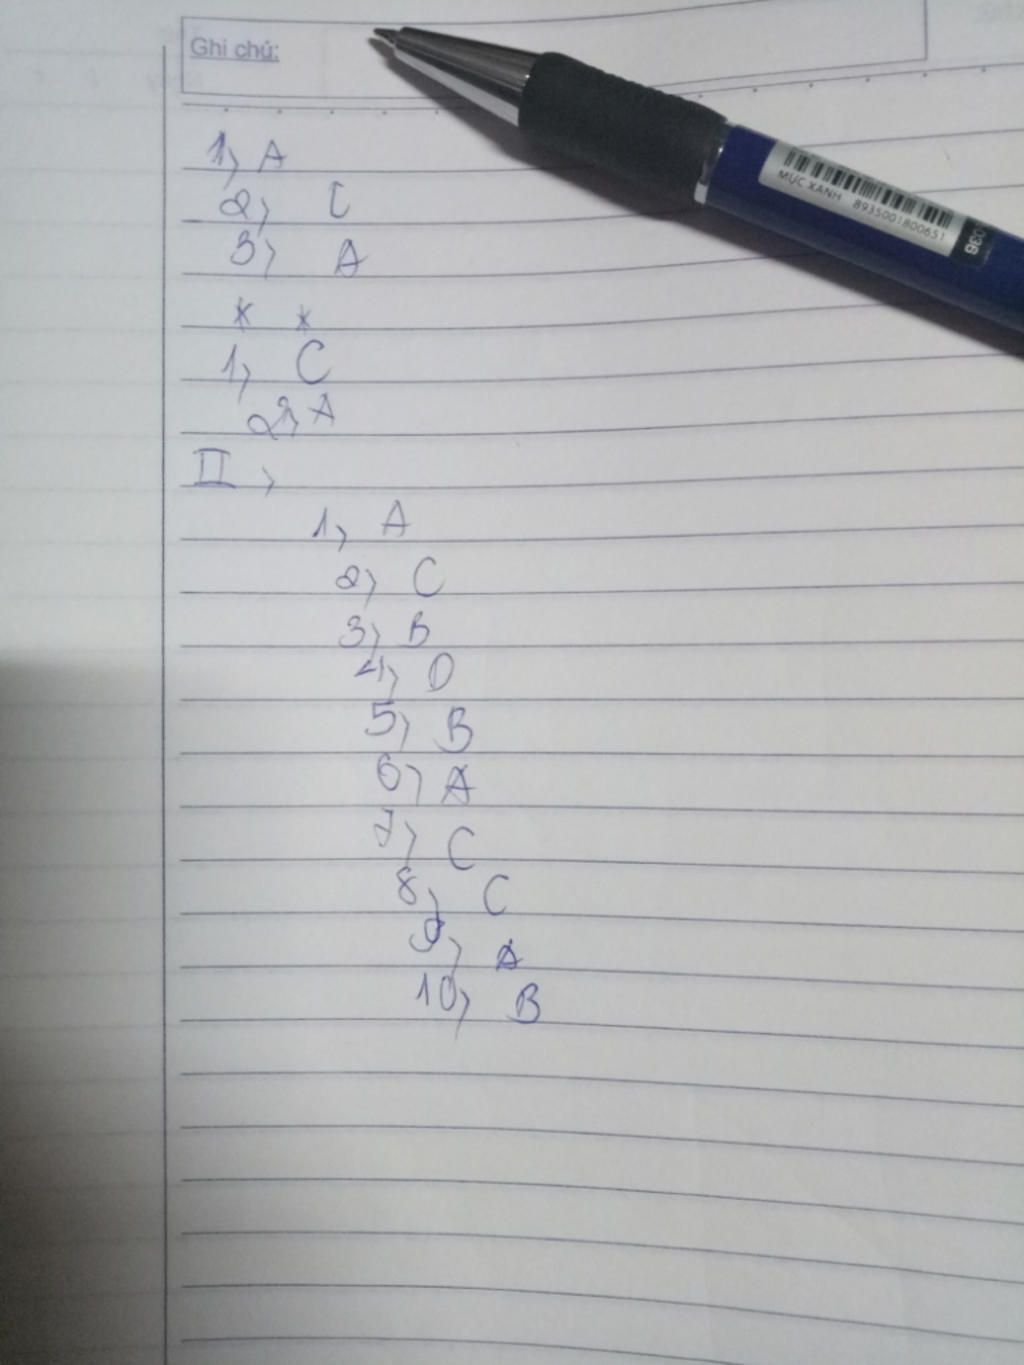 Ghi chú:
MỰC XANH 8935001800651
036
1, A
2, C
3, A
* *
1, C
2, A
II,
1, A
2, C
3, B
4, D
5, B
6, A
7, C
8, C
9, A
10, B